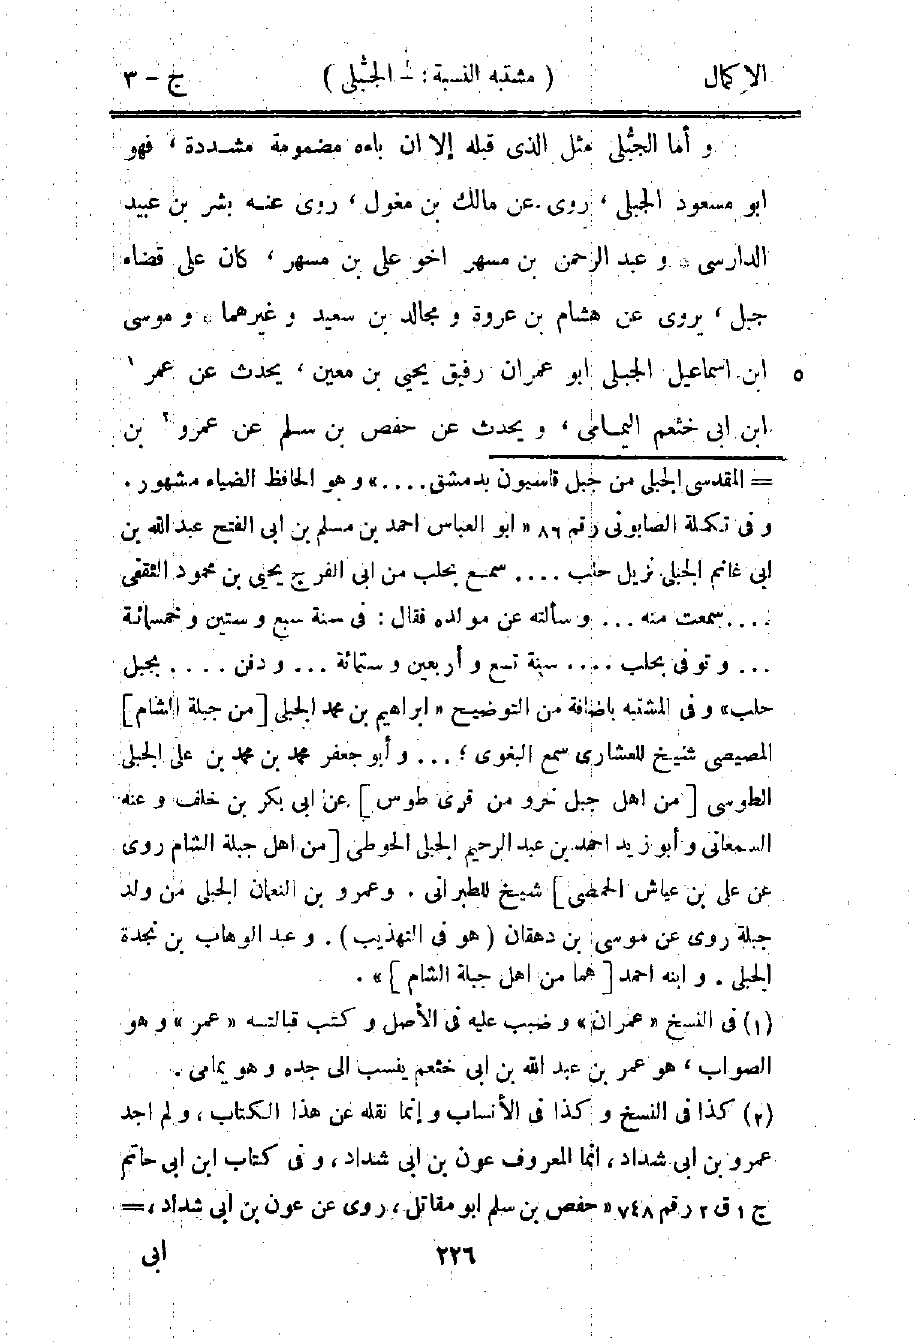 الإكمال ( مشتبه النسبة : - الجَبُّلى ) ج - ٣
و أما الجبُّلى مثل الذى قبله إلا ان باءه مضمومة مشددة ، فهو
ابو مسعود الجبلى ، روى عن مالك بن مغول ، روى عنه بشر بن عبيد
الدارسى * و عبد الرحمن بن مسهر اخو على بن مسهر ، كان على قضاء
جبل ، يروى عن هشام بن عروة و مجالد بن سعيد و غيرهما * و موسى
ابن اسماعيل الجبلى ابو عمران رفيق يحيى بن معين ، يحدث عن عمر ١ ٥
ابن ابى خثعم اليمامى ، و يحدث عن حفص بن سلم عن عمرو ٢ بن
= المقدسى الجبلى من جبل قاسيون بدمشق .... » و هو الحافظ الضياء مشهور .
و فى تكملة الصابونى رقم ٨٦ « ابو العباس احمد بن مسلم بن ابى الفتح عبد الله بن
ابى غانم الجبلى نزيل حلب .... سمع بحلب من ابى الفرج يحيى بن محمود الثقفى
.... سمعت منه ... و سألته عن مولده فقال : فى سنة سبع و ستين و خمسمائة
... و توفى بحلب .... سنة تسع و أربعين و ستمائة ... و دفن .... بجبل
حلب » و فى المشتبه باضافة من التوضيح « ابراهيم بن محمد الجبلى [ من جبلة الشام ]
المصيصى شيخ للعشارى سمع البغوى ؛ ... و أبو جعفر محمد بن محمد بن على الجبلى
الطوسى [ من اهل جبل خرو من قرى طوس ] عن ابى بكر بن خلف و عنه
السمعانى و أبو زيد احمد بن عبد الرحيم الجبلى الحوطى [ من اهل جبلة الشام روى
عن على بن عياش الحمصى ] شيخ للطبرانى . و عمرو بن النعمان الجبلى من ولد
جبلة روى عن موسى بن دهقان ( هو فى التهذيب ) . و عبد الوهاب بن نجدة
الجبلى . و ابنه احمد [ هما من اهل جبلة الشام ] » .
(١) فى النسخ « عمران » و ضبب عليه فى الأصل و كتب قبالته « عمر » و هو
الصواب ، هو عمر بن عبد الله بن ابى خثعم ينسب الى جده و هو يمامى .
(٢) كذا فى النسخ و كذا فى الأنساب و إنما نقله عن هذا الكتاب ، و لم اجد
عمرو بن ابى شداد ، انما المعروف عون بن ابى شداد ، و فى كتاب ابن ابى حاتم
ج ١ ق ٢ رقم ٧٤٨ « حفص بن سلم ابو مقاتل ، روى عن عون بن ابى شداد ، =
٢٢٦ ابى